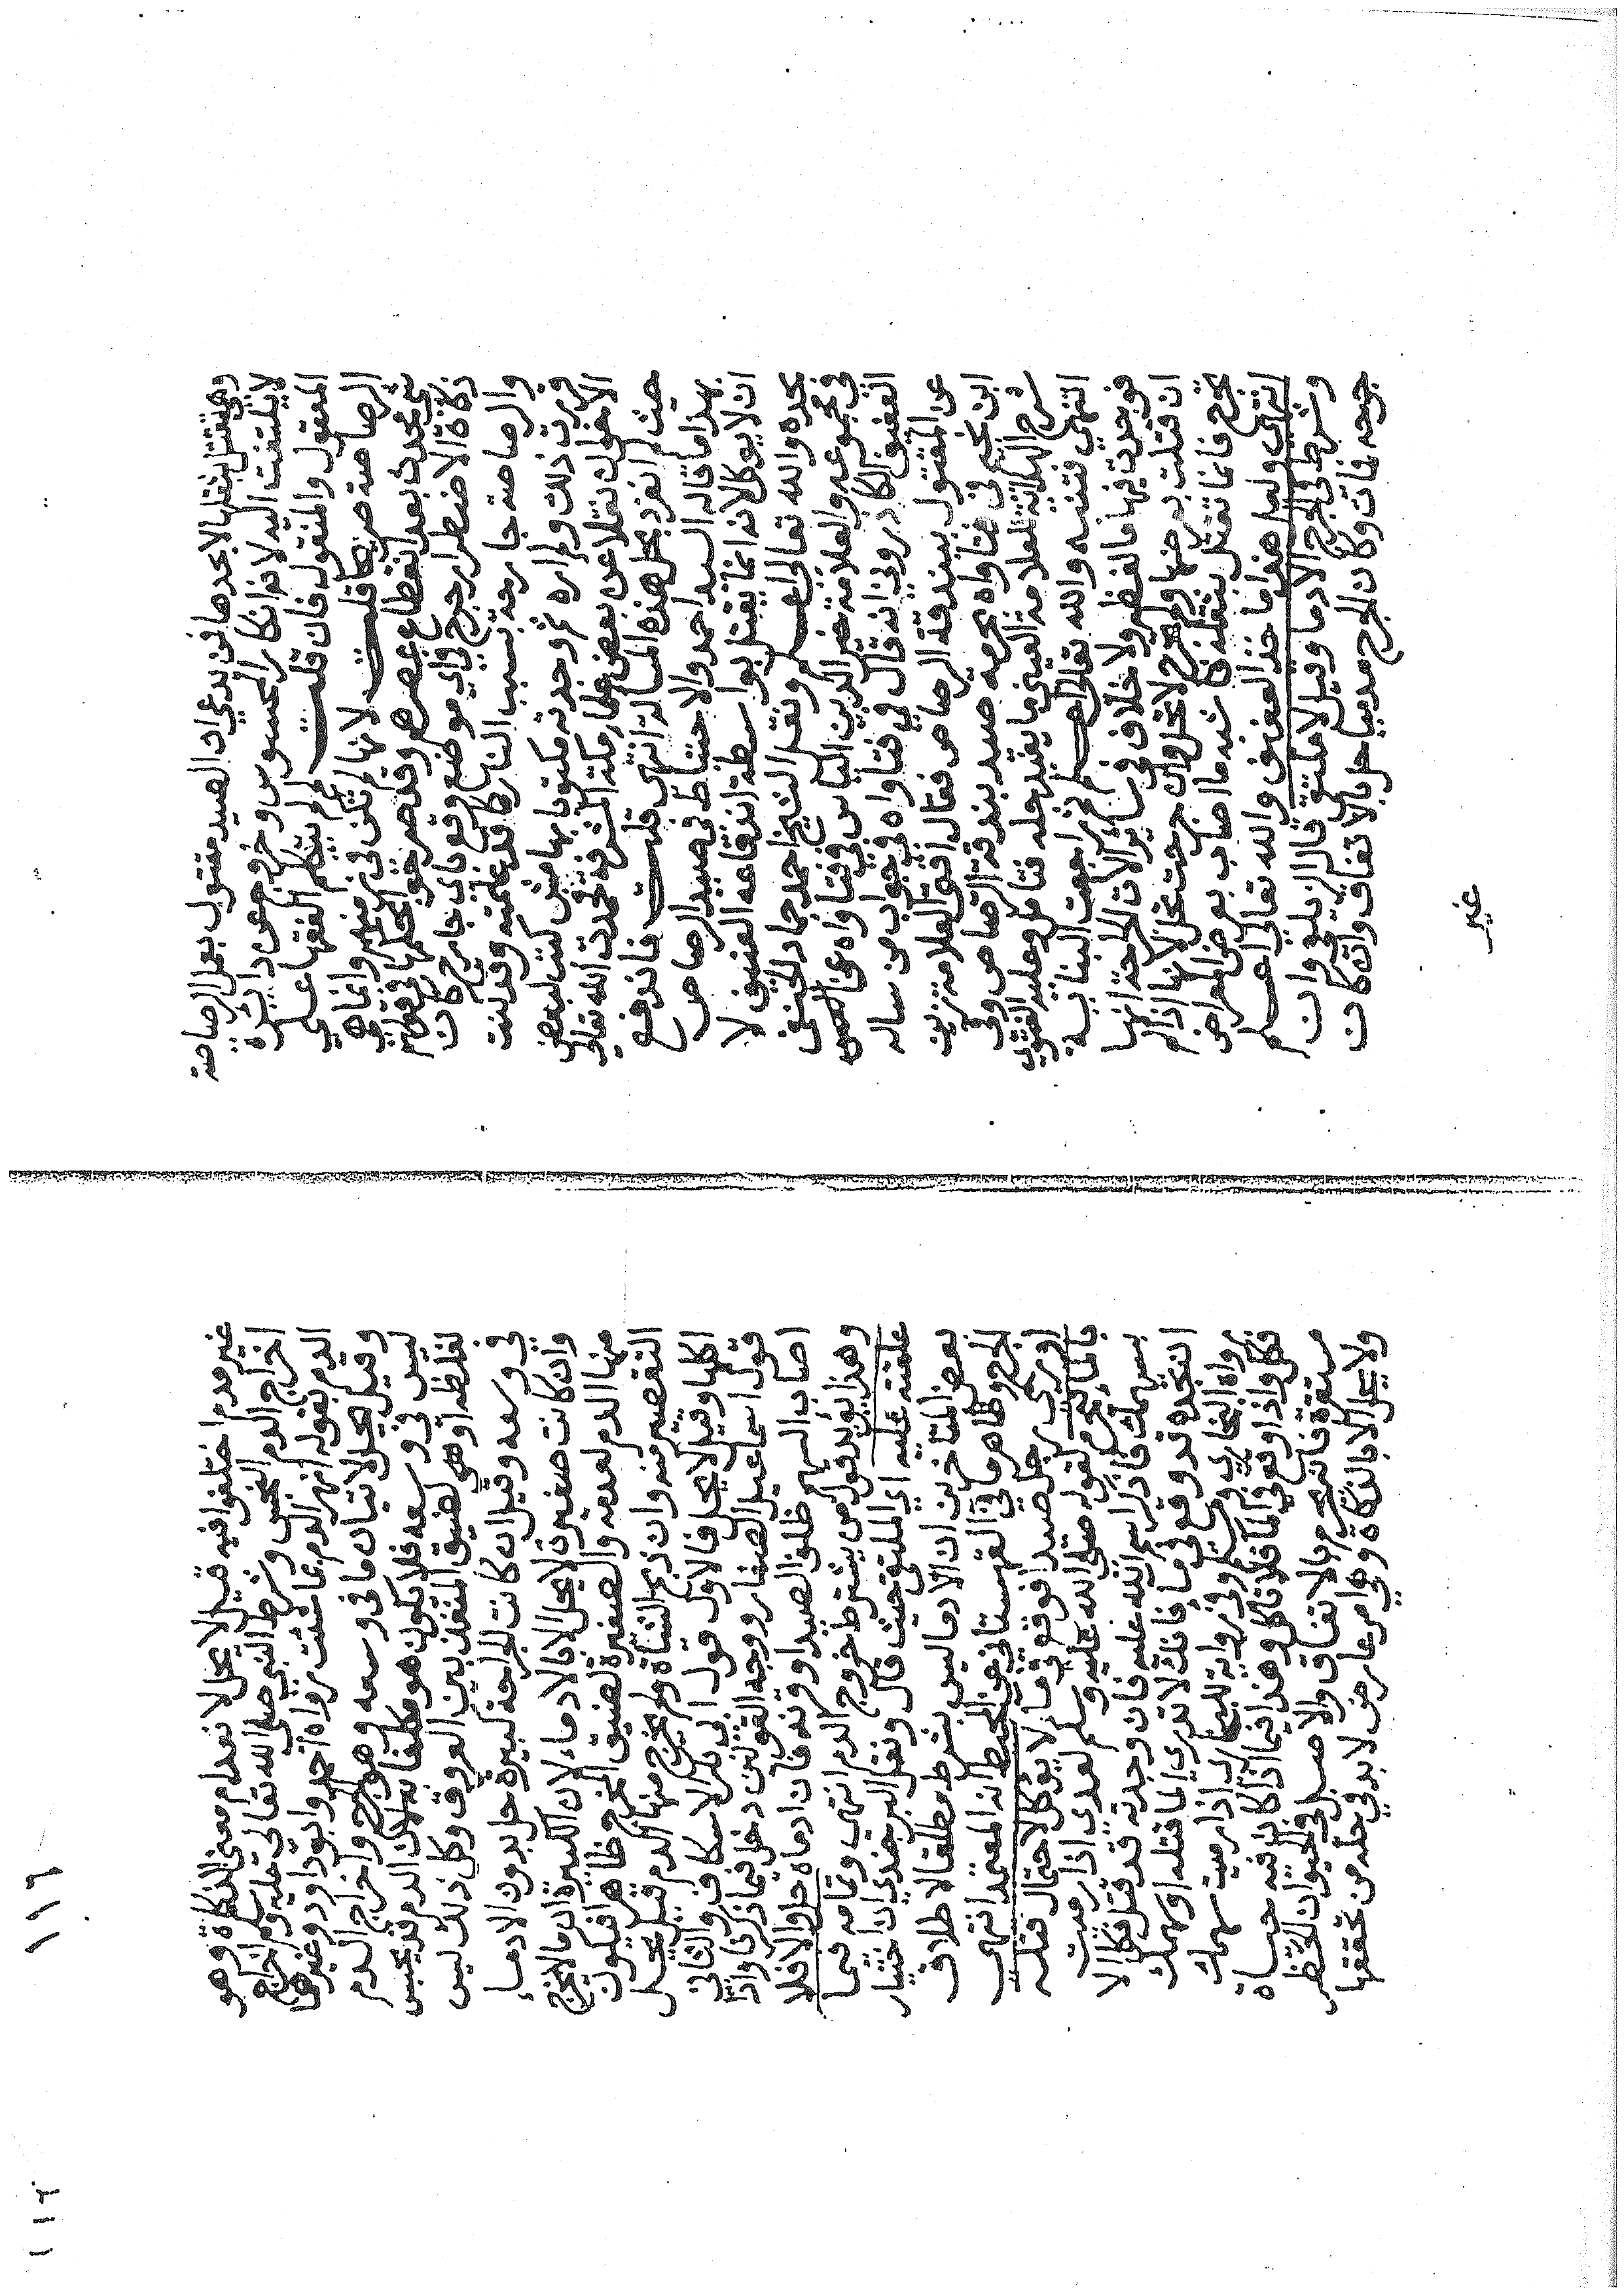 وهي تقتل بثقلها لا بحدها فمن يدعي ان الصيد مقتول بعمل الرصاصة
لا يلتفت اليه لانه انكار المحسوس وخروج عن دايرة
المعقول والمنقول فان قلت لم لم يتكلم الفقها على
الرصاصة صريحا قلت لانها لم تكن في زمنهم وانما هي
شي محدث بعد انقطاع عصرهم وقد صرحوا بحكمها في قولهم
ذكاة الاضطرار جرح في اي موضع وقع باي جارح كان
والرصاصة جارحة بسبب النار كما قد علمته وقد كنت
قررت ذلك ولم اره ثم وجدته مكتوبا بهامش كتب لبعض
الاخوان نقلا عن بعض علماء مكة المشرفة فحمدت الله تعالى
حيث لم انفرد بحل هذه المسالة انتهى قلت فاندفع
بهذا ما قاله السيد احمد والاحتياط في صيد الرصاص
ان لا يوكل لانه انما يقتل بواسطة اندفاعه العنيف لا
بحده والله تعالى اعلم ونقل الشيخ احمد حماد الحنفي
في مجموعه والعلامة خير الدين الياس في فتاواه عن
العفيف الكازروني انه قال في فتاواه في جواب من ساله
عن المقتول ببندقة الرصاص فقال افتى العلامة زين
ابن نجيم في فتاواه بحرمة صيد بندقة الرصاص وفي
شرح الهداية للعلامة العيني ما يفيد حله فتامل وعليه الفتوى
انتهى فتنبه والله تعالى اعلم ثم راجعت البناية
فوجدت فيها ما لفظه ولا خلاف في ساير الات الجارحة انها
ان قتلت بعرضها ولم تجرح لا تحل وان جرحت تحل لانها اذا لم
تجرح فانما تقتل بثقله فاشبه ما اصاب بعرض المعراض
انتهى ولعل هذا ماخذ العفيف والله تعالى اعلم
وشرط في الجرح الادما وقيل لا ملتقى قال الزيلعي وان
جرحه فمات وكان الجرح مدميا حل بالاتفاق وان كان
غير
غير مدم اختلفوا فيه قيل لا يحل لانعدام معنى الذكاة وهو
اخراج الدم النجس وشرط النبي صلى الله تعالى عليه وسلم اخراج
الدم بقوله انهر الدم بما شئت رواه احمد وابو داود وغيرهما
وقيل يحل لاتيان ما في وسعه وهو الجرح واخراج الدم
ليس في وسعه فلا يكون هو مكلفا به لان الدم قد يحبس
لغلظه او لضيق المنفذ بين العروق وكل ذلك ليس
في وسعه وقيل ان كانت الجراحة كبيرة حل بدون الادماء
وان كانت صغيرة لا يحل الا بالادماء لان الكبيرة انما لا يخرج
منها الدم لعدمه والصغيرة لضيق المخرج ظاهرا فيكون
التقصير منه وان ذبح الشاة ولم يخرج منها الدم قيل يحل
اكلها وقيل لا يحل فالاول قول ابي بكر الاسكاف والثاني
قول اسماعيل الصفار ووجه القولين دخل فيما ذكرنا واذا
اصاب السهم ظلف الصيد او قرنه فان ادماه حل والا فلا
وهذا يؤيد قول من يشترط خروج الدم انتهى وتمامه فيما
علقته عليه اي الملتقى حيث قال ونقل البرجندي ان اختيار
بعض المتاخرين ان الادما ليس بشرط مطلقا لاطلاق
الجرح وظاهر ما في القهستاني عن المحيط انه المعتمد انتهى
او رمى رجل صيدا فوقع في ماء لا يوكل لاحتمال قتله
بالماء فيحرم لقوله صلى الله عليه وسلم لعدي اذا رميت
بسهمك فاذكر اسم الله عليه فان وجدته قد قتل فكل الا
ان تجده قد وقع في ماء فانك لا تدري الماء قتله او سهمك
رواه البخاري ومسلم وفي رواية للبخاري اذا رميت سهمك
فكل واذا وقع في الماء فلا تاكل وهذا فيما اذا كان فيه حياة
مستقرة فانه يحرم بالاتفاق والاصل في الحيوان الحظر
ولا يحل الا بالذكاة وهي امر عارض لا بد في حله من تحققها
١١٦
١١٢